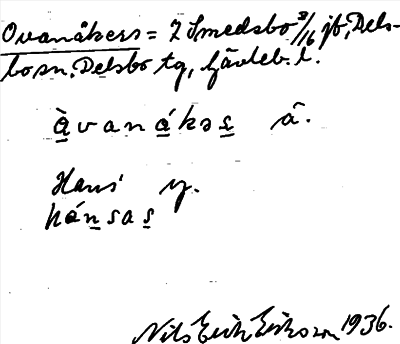 Ovanåkers = 7 Smedsbo 8/16 jb, Dels-
bo sn. Delsbo tg, Gävleb. l.
àvanákəs å.
Hans' y.
hánsas
Nils Erik Eriksson 1936.